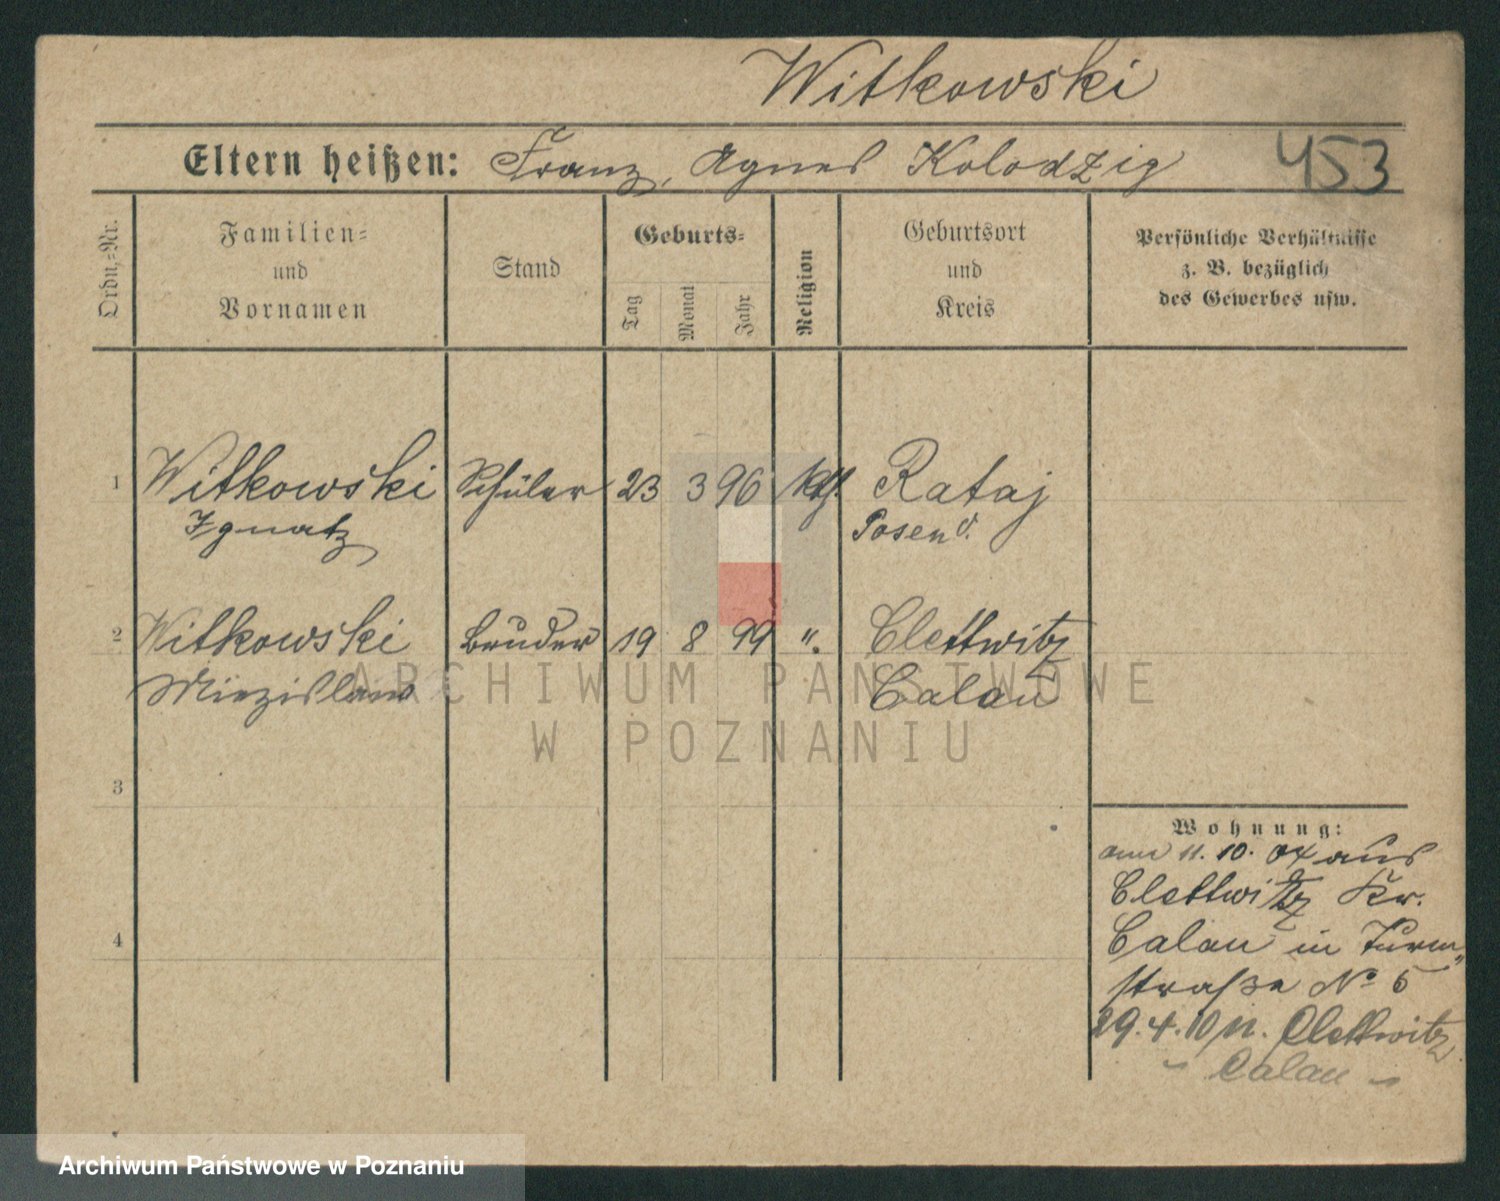 Witkowski
Eltern heißen: Franz, Agnes Kolodzig
453
Ordn.-Nr.
Familien-
und
Vornamen
Stand
Geburts-
Tag
Monat
Jahr
Religion
Geburtsort
und
Kreis
Persönliche Verhältnisse
z. B. bezüglich
des Gewerbes usw.
1 Witkowski Schüler 23 3 96 kth. Rataj
Ignatz Posen O.
2 Witkowski Bruder 19 8 99 ". Clettwitz
Miezislaw Calau
3
4
Wohnung:
am 11. 10. 04 aus
Clettwitz Kr.
Calau in Turm„
straße No 5
29.4.10 n. Clettwitz
- Calau -
ARCHIWUM PAŃSTWOWE
W POZNANIU
Archiwum Państwowe w Poznaniu